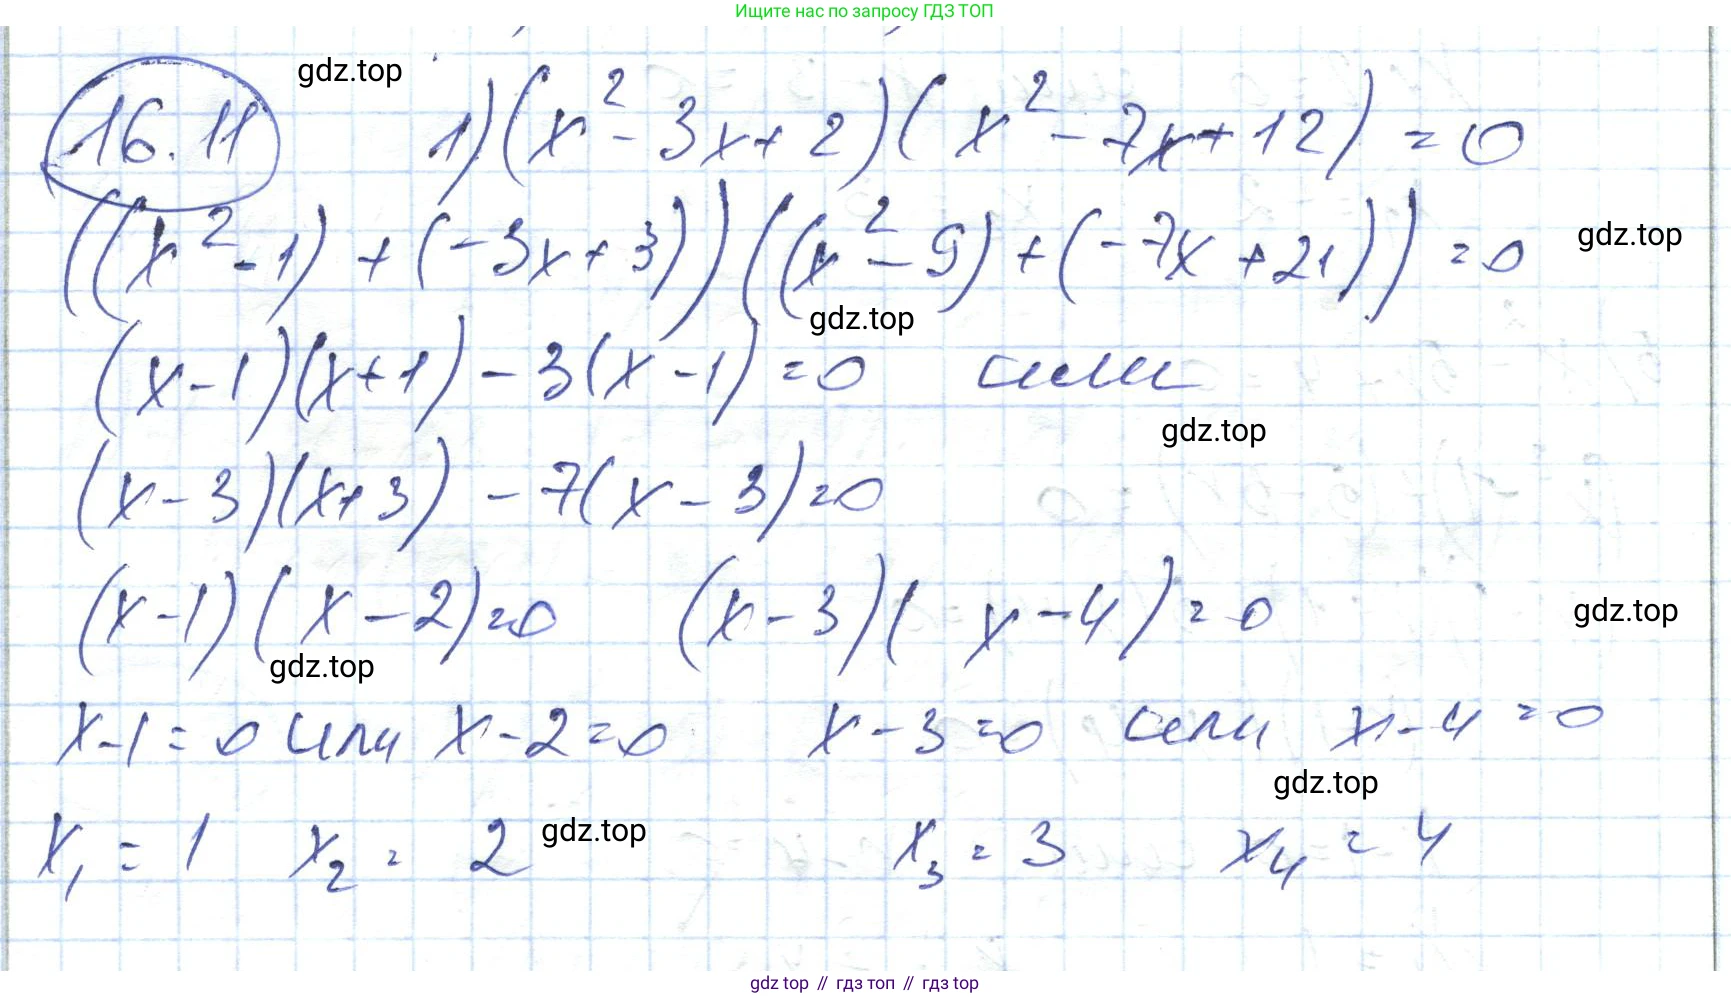 Ищите нас по запросу ГДЗ ТОП
16.11 gdz.top 1) (x² - 3x + 2)(x² - 7x + 12) = 0
((x² - 1) + (-3x + 3))((x² - 9) + (-7x + 21)) = 0 gdz.top
gdz.top
(x - 1)(x + 1) - 3(x - 1) = 0 или
gdz.top
(x - 3)(x + 3) - 7(x - 3) = 0
(x - 1)(x - 2) = 0 (x - 3)(x - 4) = 0 gdz.top
gdz.top
x - 1 = 0 или x - 2 = 0 x - 3 = 0 или x - 4 = 0
gdz.top
x₁ = 1 x₂ = 2 gdz.top x₃ = 3 x₄ = 4
gdz top // гдз топ // гдз top